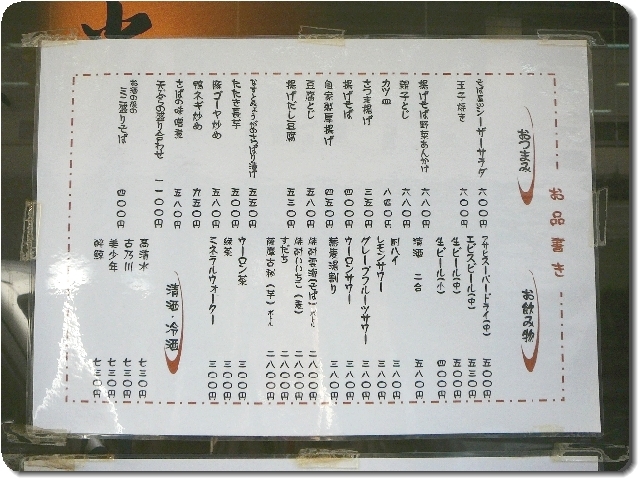 お品書き
おつまみ
そば屋のシーザーサラダ 六〇〇円
玉子焼き 六〇〇円
揚げそば野菜あんかけ 六八〇円
親子とじ 六八〇円
カツ皿 八五〇円
さつま揚げ 三五〇円
揚げそば 四〇〇円
自家製厚揚げ 四五〇円
豆腐とじ 五八〇円
揚げだし豆腐 五三〇円
なすとみょうがのさっぱり漬け 五五〇円
たたき長芋 五五〇円
豚ゴーヤ炒め 五八〇円
鴨ネギ炒め 九五〇円
さばの味噌煮 五八〇円
天ぷらの盛り合わせ 一一〇〇円
ミニ盛りそば 四〇〇円
お飲み物
アサヒスーパードライ(中) 五〇〇円
エビスビール(中) 五五〇円
生ビール(中) 五五〇円
生ビール(小) 四五〇円
清酒 二合 五八〇円
酎ハイ 三八〇円
レモンサワー 三八〇円
グレープフルーツサワー 三八〇円
ウーロンサワー 三八〇円
蕎麦湯割り 三八〇円
二八〇〇円
二八〇〇円
すだち 二八〇〇円
薩摩古秘(芋)ボトル 二八〇〇円
ウーロン茶 三〇〇円
緑茶 三〇〇円
ミネラルウォーター 三〇〇円
清酒・冷酒
高清水 七三〇円
古乃川 七三〇円
美少年 七三〇円
酔鯨 七三〇円